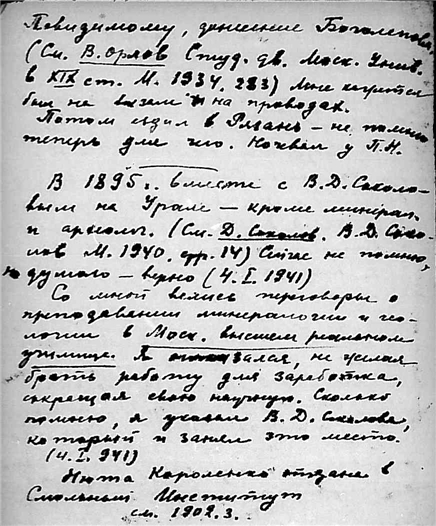 Повидимому, донесение Боголепова,
(См. В. Орлов Студ. дв. Моск. Унив.
в XIX ст. М. 1934. 283) Мне кажется
был на вокзале и на проводах.
Потом ездил в Рязань – не помню
теперь для чего. Ночевал у П.Н.
В 1895 г. вместе с В. Д. Соколо-
вым на Урале – кроме минерал.
и археолог. (См. Д. Соколов. В. Д. Соко-
лов М. 1940. стр. 14) Сейчас не помню,
но думаю – верно (4. I. 1941)
Со мной велись переговоры о
преподавании минералогии и гео-
логии в Моск. высшем реальном
училище. Я отказался, не желая
брать работу для заработка,
сокращая свою научную. Сколько
помню, я указал В. Д. Соколова,
который и занял это место.
(4. I. 941)
Нюта Короленко отдана в
Смольный Институт
см. 1902. 3.